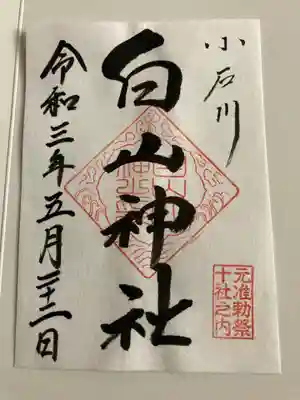 小石川
白山神社
元准勅祭
十社之内
令和三年五月二十二日